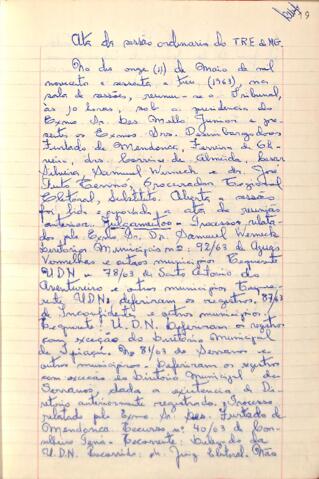 79
Ata da sessão ordinaria do TRE de MG.
No dia onze (11) de Maio de mil
novecentos e sessenta e tres (1963), na
sala de sessões, reuniu-se o Tribunal,
às 10 horas, sob a presidencia do
Exmo Sr. Des. Mello Junior e pre-
sentes os Exmos. Srs. Desembargadores
Furtado de Mendonca, Ferreira de Oli-
veira, drs. de Almeida, Cesar
Silveira, Samuel Werneck e dr. José
Procurador Regional
Eleitoral, Substituto. Aberta a sessão
foi lida e aprovada a ata da reunião
anterior. Julgamentos - Processos relata-
dos pelo Exmo Sr. Dr. Samuel Werneck
Diretórios Municipais nº 92/63 de Aguas
Vermelhas e outros municipios Requerente
UDN - 78/63 de Santo Antonio do
Aventureiro e outros municipios Reque-
rente UDN: deferiram os registros, 87/63
de Inconfidentes e outros municipios.
Requerente: U.D.N. Deferiram os registros
com exceção do Diretório Municipal
de No 81/63 de Serranos e
outros municipios - Deferiram os registros
com exceção do Diretório Municipal de
Serranos, dada a existencia de Di-
retorio anteriormente registrado. Processo
relatado pelo Exmo. Sr. Des. Furtado de
Mendonca. Recurso nº 40/63 de Con-
selheiro Pena - Recorrente: Delegado da
U.D.N. Recorrido: dr. Juiz Eleitoral. Não